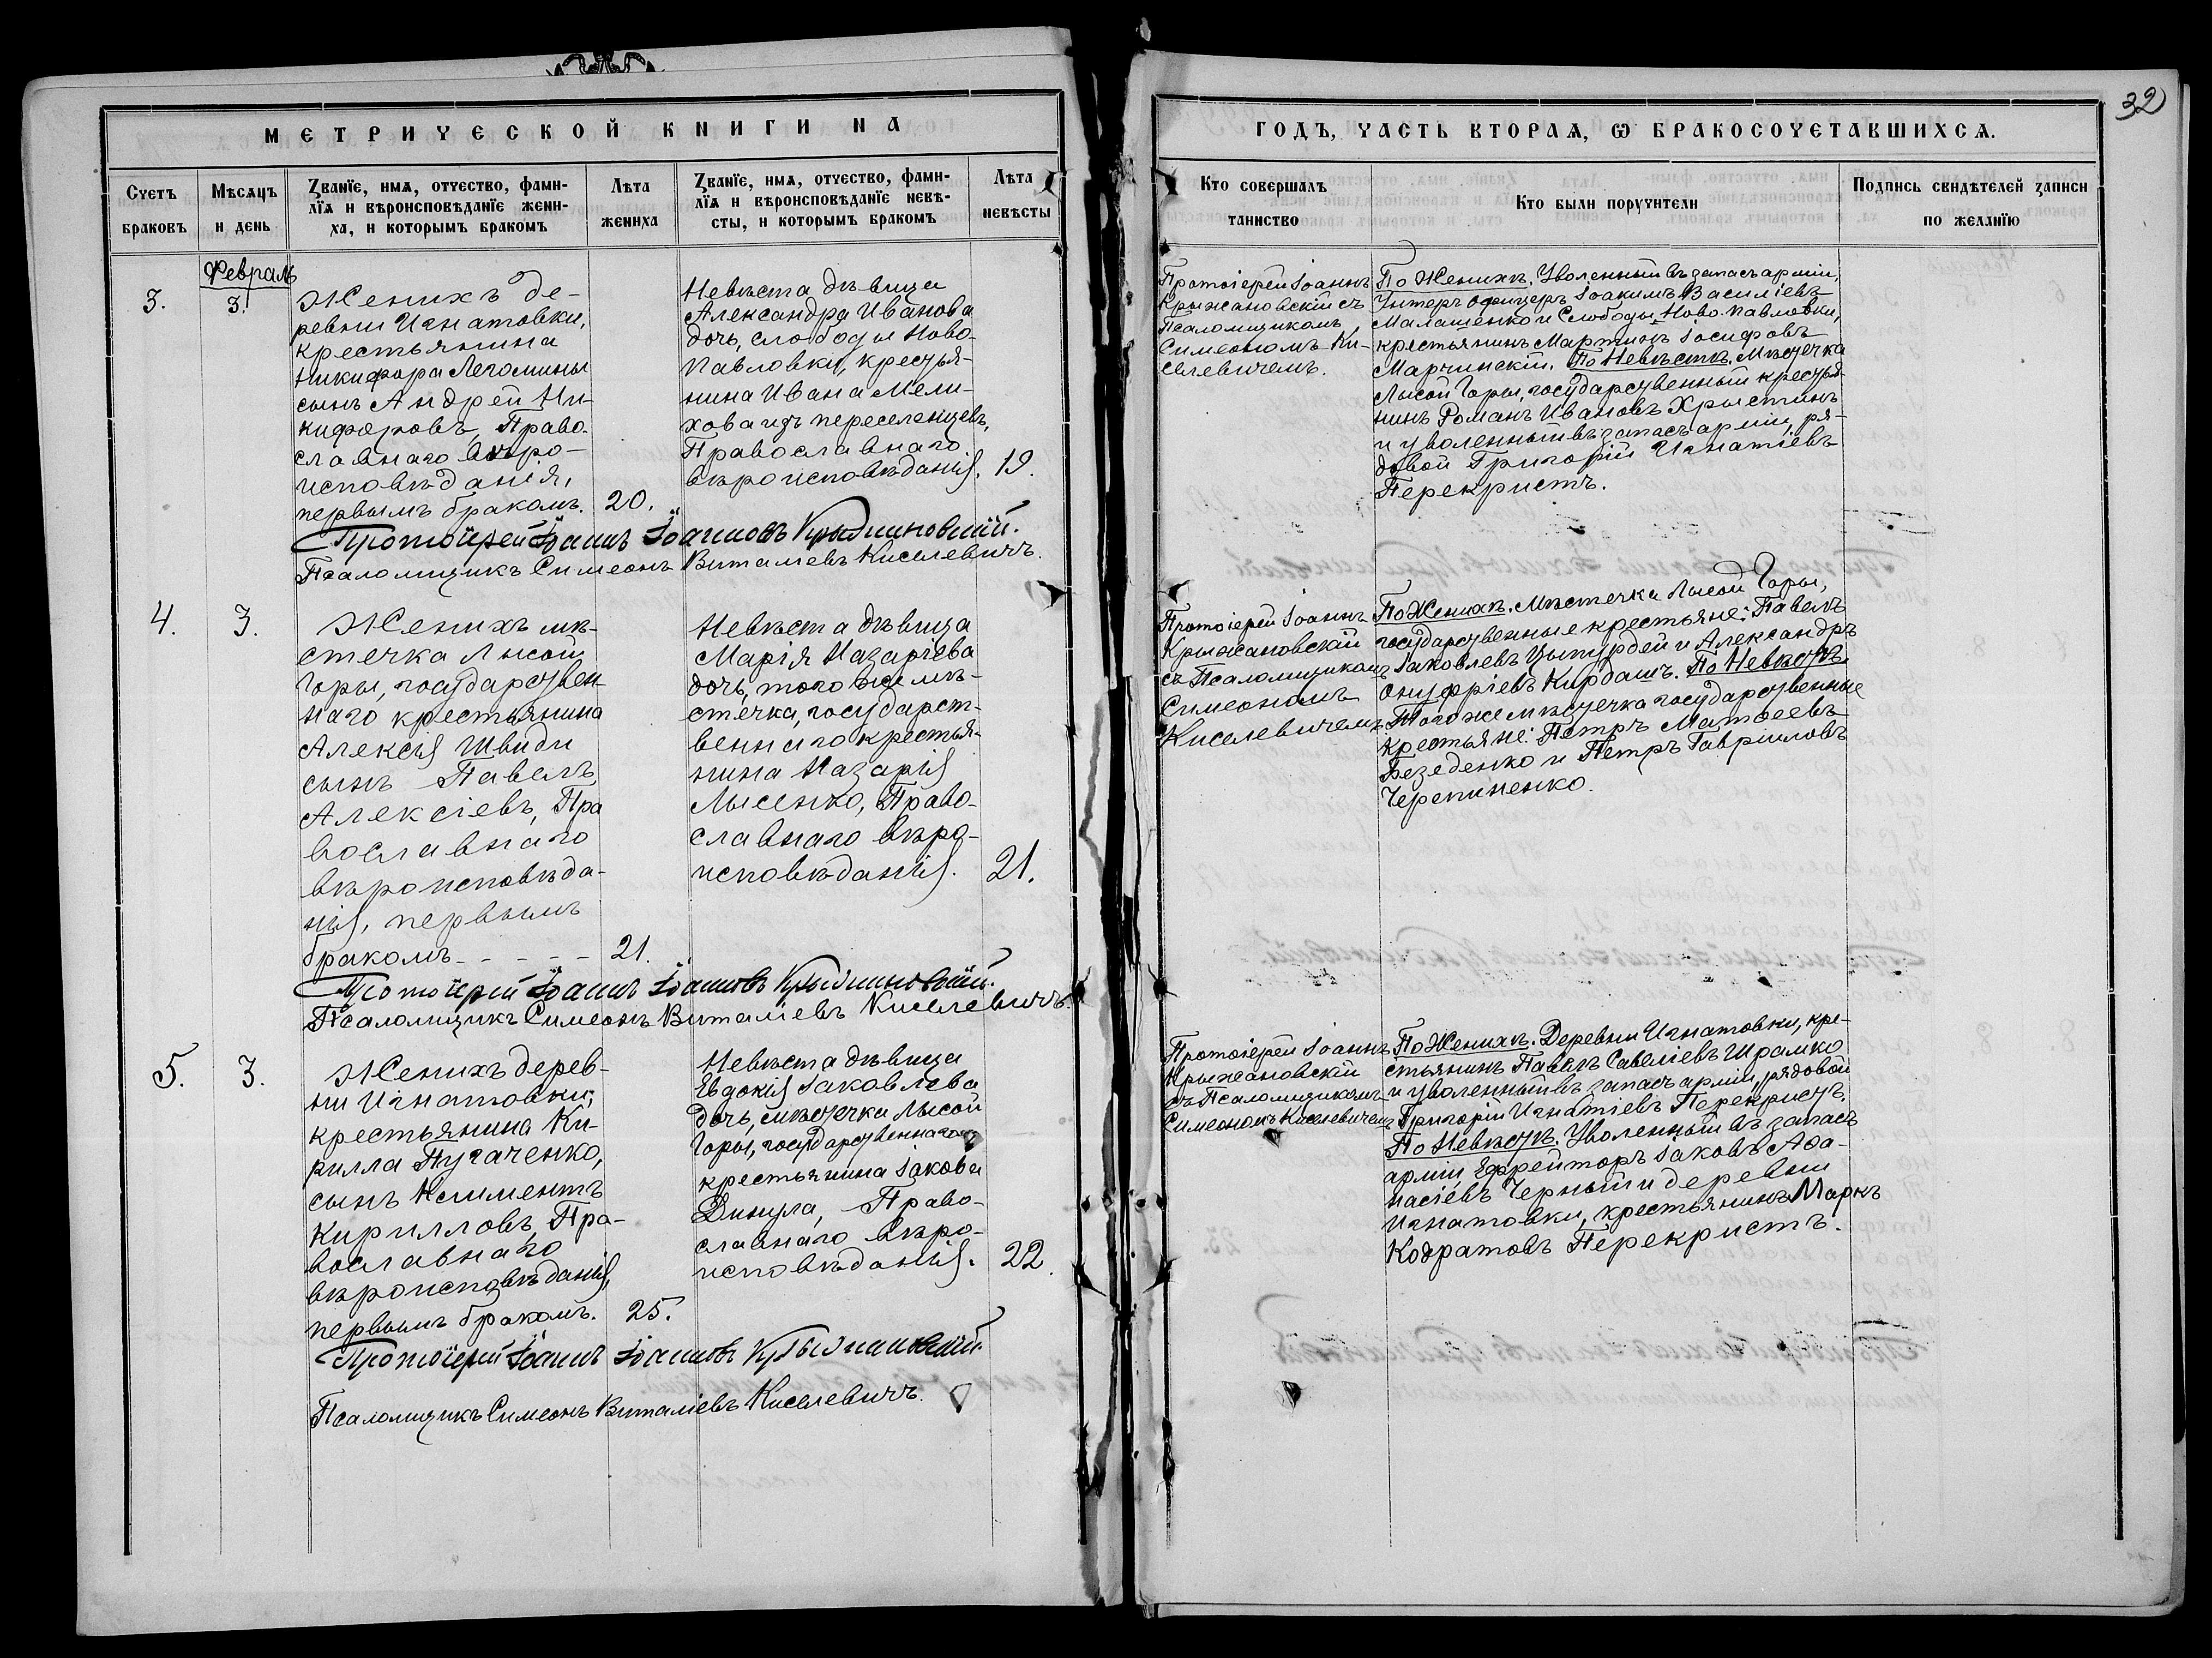 МЕТРИЧЕСКОЙ КНИГИ НА
Счетъ браковъ
Мѣсяцъ и день
Званїе, имѧ, отчество, фами-
лїѧ и вѣроисповѣданїе жени-
ха, и которымъ бракомъ
Лѣта жениха
Званїе, имѧ, отчество, фами-
лїѧ и вѣроисповѣданїе невѣ-
сты, и которымъ бракомъ
Лѣта невѣсты
3.
Февраль
3.
Женихъ де-
ревни Игнатовки,
крестьянина
Никифора Легомины
сынъ Андрей Ни-
кифоровъ, Право-
славнаго вѣро-
исповѣданія,
первымъ бракомъ.
20.
Невѣста дѣвица
Александра Иванова
дочь, слободы Ново-
павловки, крестья-
нина Ивана Мели-
хова изъ переселенцевъ,
Православнаго
вѣроисповѣданія.
19.
Протоіерей Іоаннъ Іоанновъ Крыжановскій.
Псаломщикъ Симеонъ Виталіевъ Киселевичъ.
4.
3.
Женихъ мѣ-
стечка Лысой
Горы, государствен-
наго крестьянина
Алексія Швиди
сынъ Павелъ
Алексіевъ, Пра
вославнаго
вѣроисповѣда-
нія, первымъ
бракомъ - - - - -
21.
Невѣста дѣвица
Марія Назаріева
дочь, того же мѣ-
стечка, государст-
веннаго крестья-
нина Назарія
Лысенко, Право-
славнаго вѣро-
исповѣданія.
21.
Протоіерей Іоаннъ Іоанновъ Крыжановскій.
Псаломщикъ Симеонъ Виталіевъ Киселевичъ.
5.
3.
Женихъ дерев-
ни Игнатовки,
крестьянина Ки-
рилла Пугаченко,
сынъ Климентъ
Кирилловъ, Пра-
вославнаго
вѣроисповѣданія,
первымъ бракомъ.
25.
Невѣста дѣвица
Евдокія Іаковлева
дочь, мѣстечка Лысой
Горы, государственнаго
крестьянина Іакова
Динула, Право-
славнаго вѣро-
исповѣданія.
22.
Протоіерей Іоаннъ Іоанновъ Крыжановскій.
Псаломщикъ Симеонъ Виталіевъ Киселевичъ.
32
ГОДЪ, ЧАСТЬ ВТОРАѦ, Ѿ БРАКОСОЧЕТАВШИХСѦ.
Кто совершалъ
таинство
Кто были поручители
Подпись свидѣтелей записи
по желанїю
Протоіерей Іоаннъ
Крыжановскій съ
Псаломщикомъ
Симеономъ Ки-
селевичемъ.
По Женихѣ. Уволенный въ запасъ арміи,
Унтеръ офицеръ Іоакимъ Василіевъ
Малашенко и Слободы Ново-павловки,
крестьянинъ Мартинъ Іосифовъ
Марчинскій. По Невѣстѣ. Мѣстечка
Лысой Горы, государственный крестья-
нинъ Романъ Ивановъ Христинъ
и уволенный въ запасъ арміи, ря-
довой Григорій Игнатіевъ
Перекристъ.
Протоіерей Іоаннъ
Крыжановскій
съ Псаломщикомъ
Симеономъ
Киселевичемъ
По Женихѣ. Мѣстечка Лысой Горы,
государственные крестьяне: Павелъ
Іаковлевъ Цыпурдей и Александръ
Онуфріевъ Кирдашъ. По Невѣстѣ.
Того же мѣстечка государственные
крестьяне: Петръ Матѳеевъ
Безеденко и Петръ Гавриловъ
Черепиненко.
Протоіерей Іоаннъ
Крыжановскій
съ Псаломщикомъ
Симеономъ Киселевичемъ
По Женихѣ. Деревни Игнатовки, кре-
стьянинъ Павелъ Савеліевъ Шрамко
и уволенный въ запасъ арміи, рядовой
Григорій Игнатіевъ Перекристъ.
По Невѣстѣ. Уволенный въ запасъ
арміи, Ефрейторъ Іаковъ Аѳа-
насіевъ Черный и деревни
Игнатовки, крестьянинъ Маркъ
Кодратовъ Перекристъ.